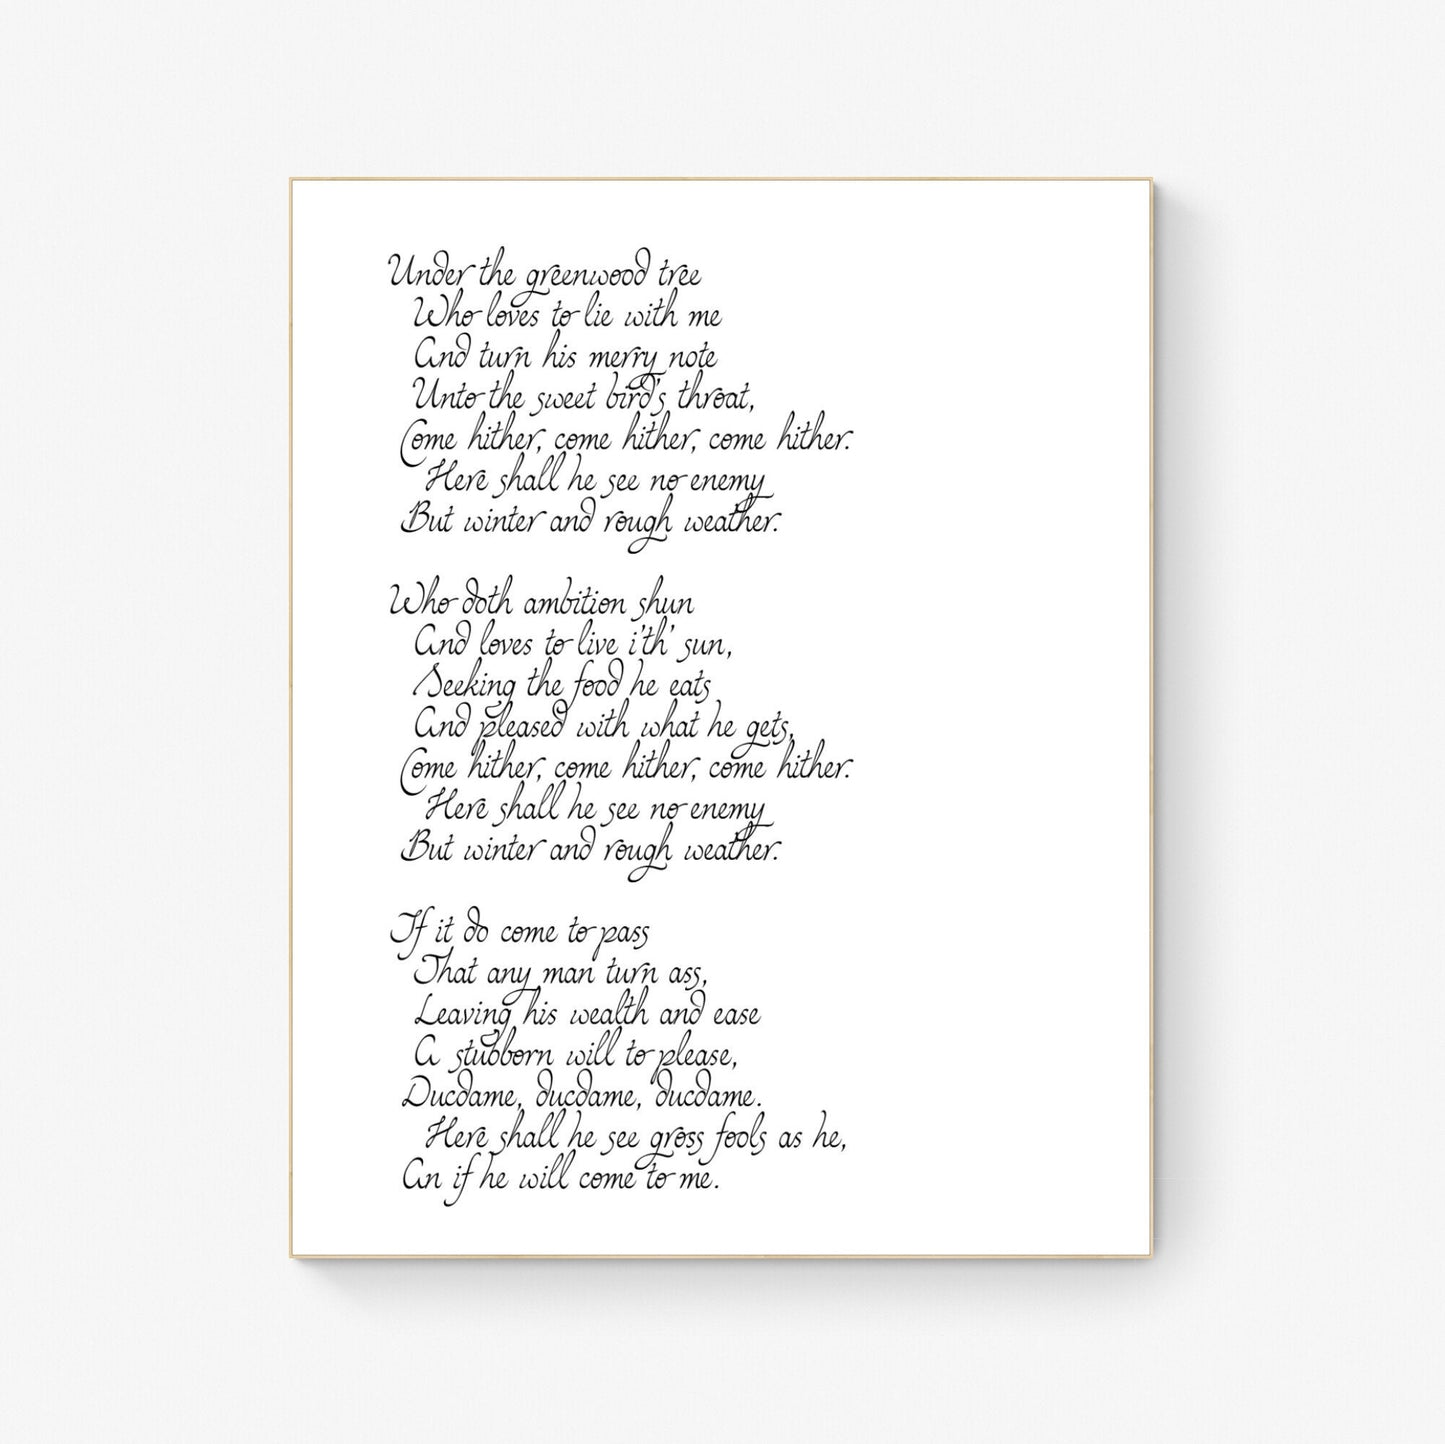 Under the greenwood tree
Who loves to lie with me
And turn his merry note
Unto the sweet bird's throat,
Come hither, come hither, come hither.
Here shall he see no enemy
But winter and rough weather.

Who doth ambition shun
And loves to live i'th' sun,
Seeking the food he eats
And pleased with what he gets,
Come hither, come hither, come hither.
Here shall he see no enemy
But winter and rough weather.

If it do come to pass
That any man turn ass,
Leaving his wealth and ease
A stubborn will to please,
Ducdame, ducdame, ducdame.
Here shall he see gross fools as he,
An if he will come to me.